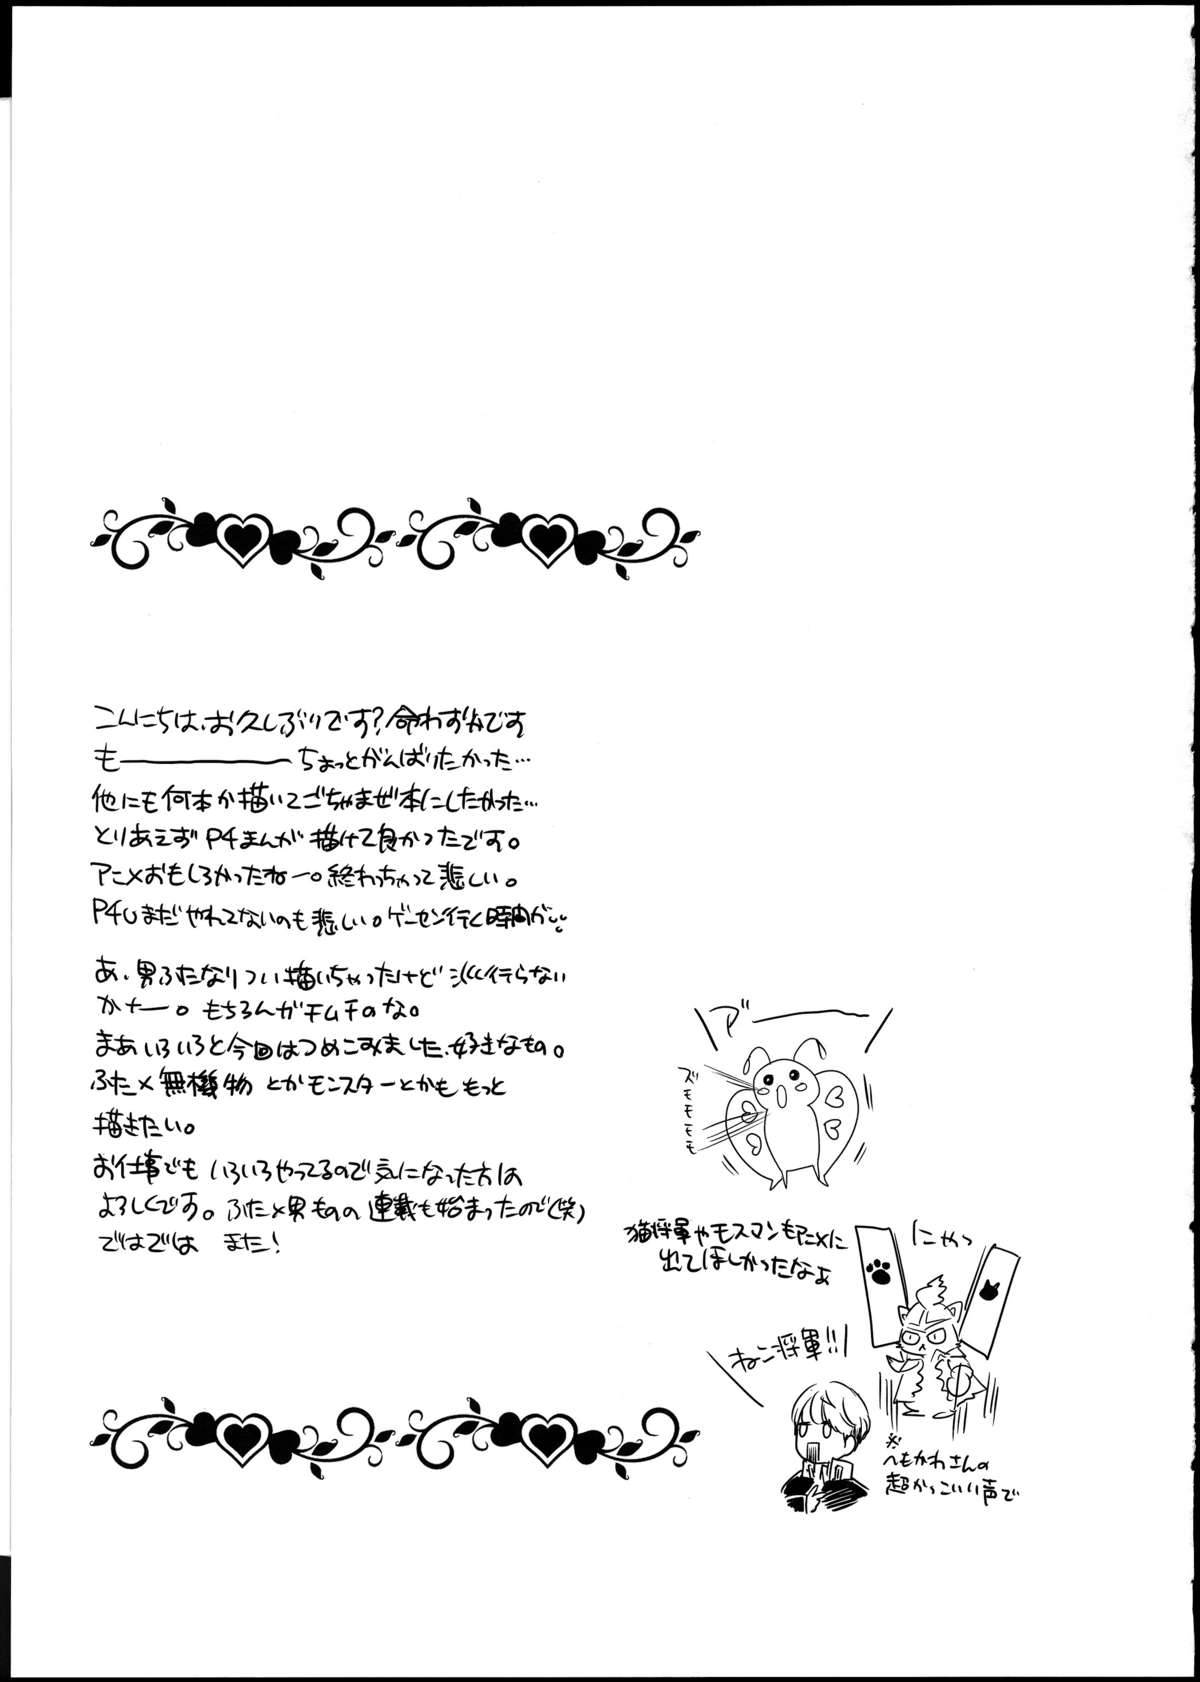 こんにちは、お久しぶりです?命わずかです
も――――ちょっとがんばりたかった…
他にも何本か描いてごちゃまぜ本にしたかった…
とりあえずP4まんが描けて良かったです。
アニメおもしろかったねー。終わっちゃって悲しい。
P4Uまだやれてないのも悲しい。ゲーセン行く時間が
あ、男ふたなりつい描いちゃったけど 行らない
かナー。もちろんガチムチのな。
まあいろいろと今回はつめこみました、好きなもの。
ふた×無機物とかモンスターとかももっと
描きたい。
お仕事でもいろいろやってるので気になった方は
よろしくです。ふた×男ものの連載も始まったので(笑)
ではでは また!
ア゛――
ズモモモモ
猫将軍やモスマンもアニメに
出てほしかったなぁ
にゃっ
ねこ将軍!!
※
へもかわさんの
超かっこいい声で